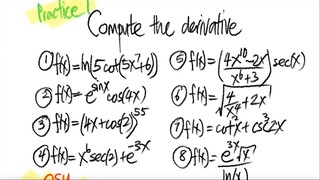 Practice 1
Compute the derivative
① f(x)=ln(5cot(5x⁷+6))
② f(x)=e^{sinx}cos(4x)
③ f(x)=(4x+cos(2))^{55}
④ f(x)=x⁶sec(2)+e^{-3x}
⑤ f(x)=((4x^{10}-2x)/(x⁶+3))sec(x)
⑥ f(x)=√(4/x⁴+2x)
⑦ f(x)=cot²x+csc³2x
⑧ f(x)=e^{3x}√x/ln(x)